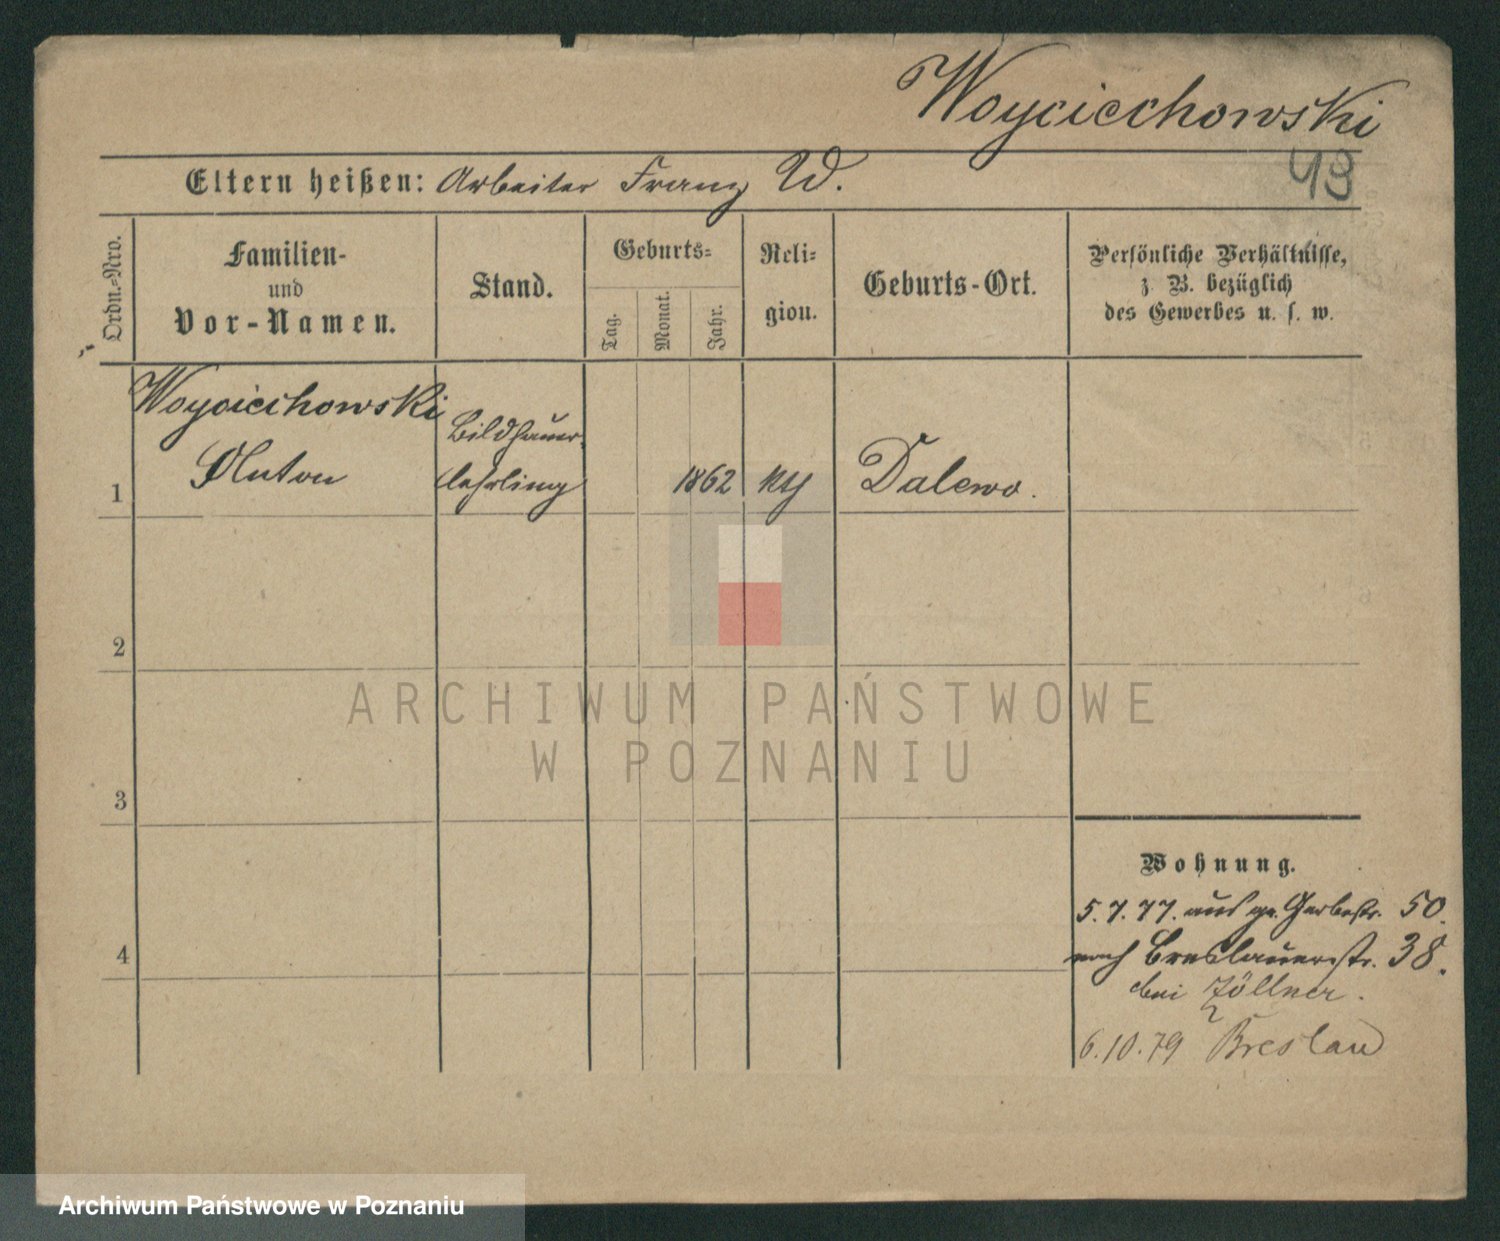 Woyciechowski
Eltern heißen: Arbeiter Franz W.
43
Ordn.-Nro.
Familien-
und
Vor-Namen.
Stand.
Geburts-
Tag.
Monat.
Jahr.
Reli-
gion.
Geburts-Ort.
Persönliche Verhältnisse,
z. B. bezüglich
des Gewerbes u. s. w.
Woyciechowski
Anton
Bildhauer
lehrling
1862
kth
Dalewo.
1
2
3
4
ARCHIWUM PAŃSTWOWE
W POZNANIU
Wohnung.
5.7.77. aus gr. Gerberstr. 50.
nach Breslauerstr. 38.
bei Zöllner.
6.10.79 Breslau
Archiwum Państwowe w Poznaniu